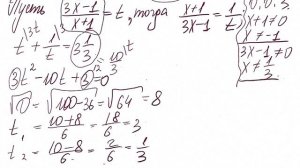 Пусть (3x-1)/(x+1) = t, тогда (x+1)/(3x-1) = 1/t
О.О.З.
x+1≠0
x≠-1
3x-1≠0
x≠1/3
t^{\3t} + 1/t^{\3} = 3 1/3 = 10/3^{\t}
3t²-10t+3=0
√D = √(100-36) = √64 = 8
t₁ = (10+8)/6 = 18/6 = 3
t₂ = (10-8)/6 = 2/6 = 1/3